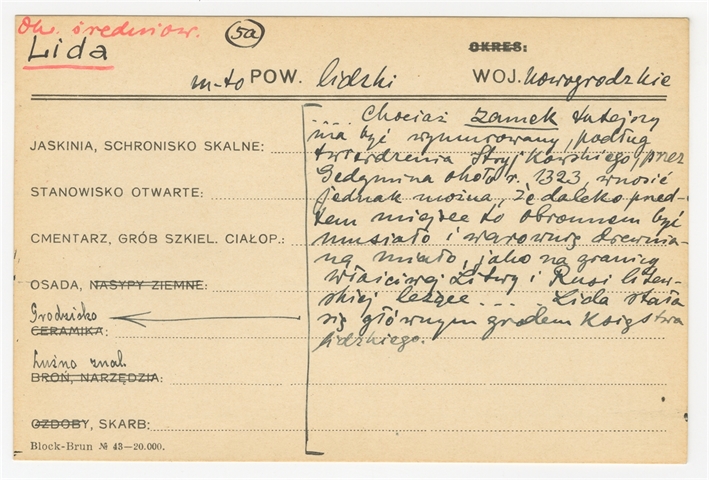 Ok. średniow.
5a
Lida
OKRES:
m-to POW. lidzki WOJ. nowogrodzkie
JASKINIA, SCHRONISKO SKALNE:
STANOWISKO OTWARTE:
CMENTARZ, GRÓB SZKIEL. CIAŁOP.:
OSADA, NASYPY ZIEMNE:
Grodzisko
CERAMIKA:
Luźno znal.
BROŃ, NARZĘDZIA:
OZDOBY, SKARB:
Block-Brun № 43—20.000.
.... Chociaż zamek tutejszy
ma być wymurowany, podług
twierdzenia Stryjkowskiego, przez
Gedymina około r. 1323, wnosić
jednak można, że daleko pred-
tem miejsce to obronnem być
musiało i warownię drewnia-
ną miało, jako na granicy
właściwej Litwy i Rusi litew-
skiej leżące.... Lida stała
się głównym grodem Księstwa
lidzkiego.